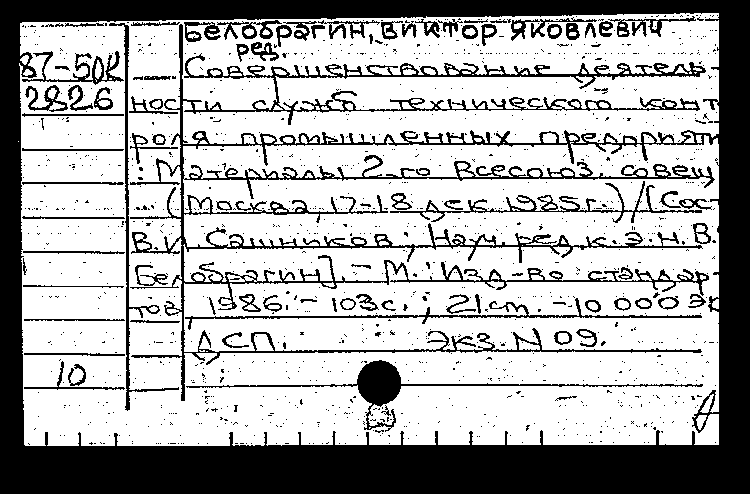 Белобрагин, Виктор Яковлевич
ред.
87-50К Совершенствование деятель-
2826 ности служб технического конт
роля промышленных предприяти
: Материалы 2-го Всесоюз. совещ
... (Москва, 17-18 дек. 1985г.) / [Сост
В.И. Сашников; Науч. ред. к.э.н. В.
Белобрагин]. - М.: Изд-во стандар-
тов, 1986. - 103с.; 21см. - 10 000 эк
ДСП. Экз. N 09.
10